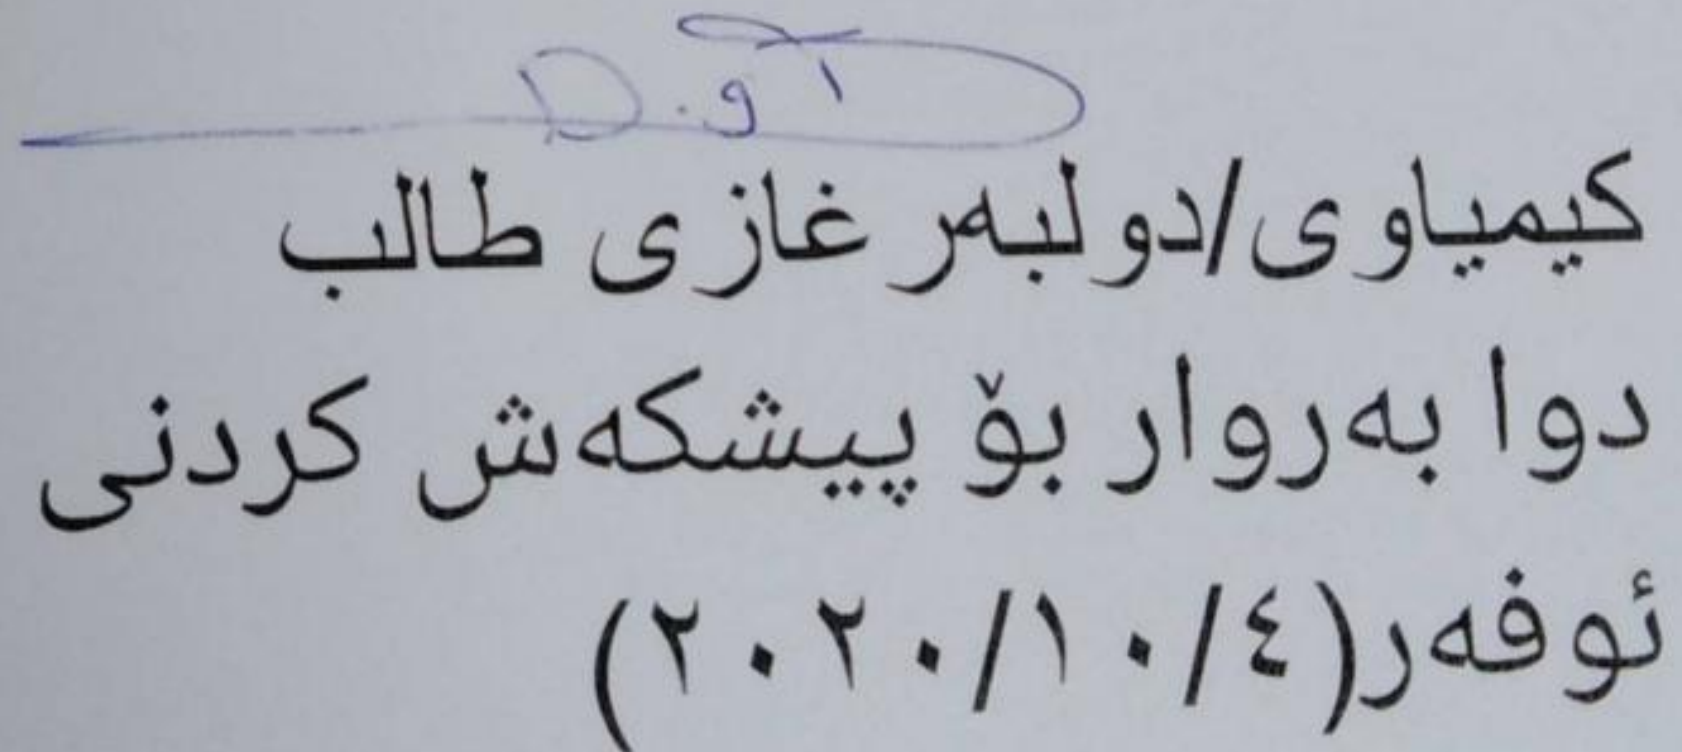 کیمیاوی/دولبەر غازی طالب
دوا بەروار بۆ پیشکەش کردنی
ئوفەر(٢٠٢٠/١٠/٤)